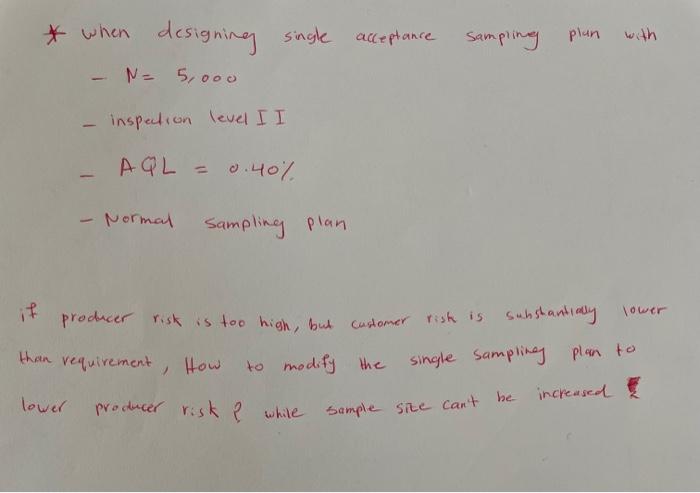 * when designing single acceptance sampling plan with
- N = 5,000
- inspection level II
- AQL = 0.40%
- Normal sampling plan
if producer risk is too high, but customer risk is substantially lower
than requirement, How to modify the single sampling plan to
lower producer risk? while sample size can't be increased